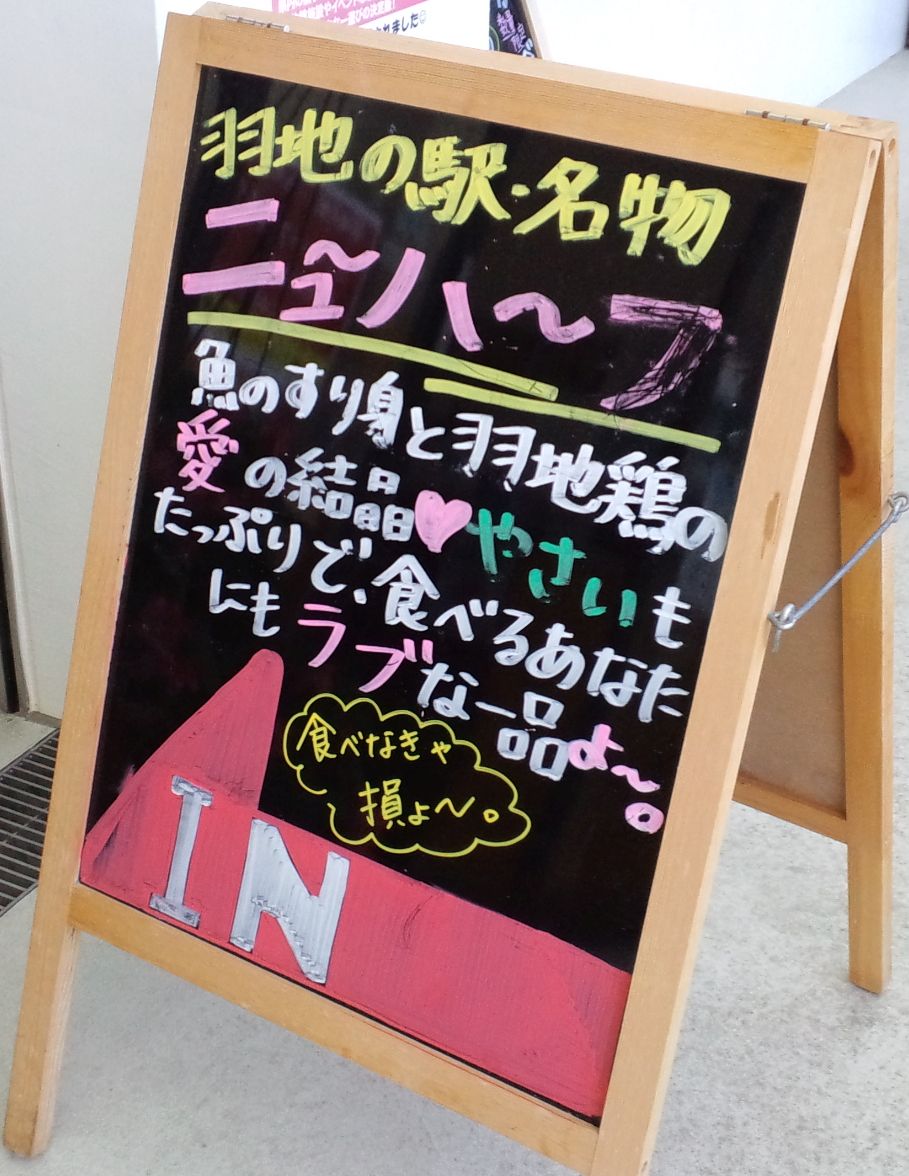 羽地の駅・名物
ニュ〜ハ〜フ
魚のすり身と羽地鶏の
愛の結晶♥やさいも
たっぷりで、食べるあなた
にもラブな一品よ〜。
食べなきゃ
損よ〜。
IN